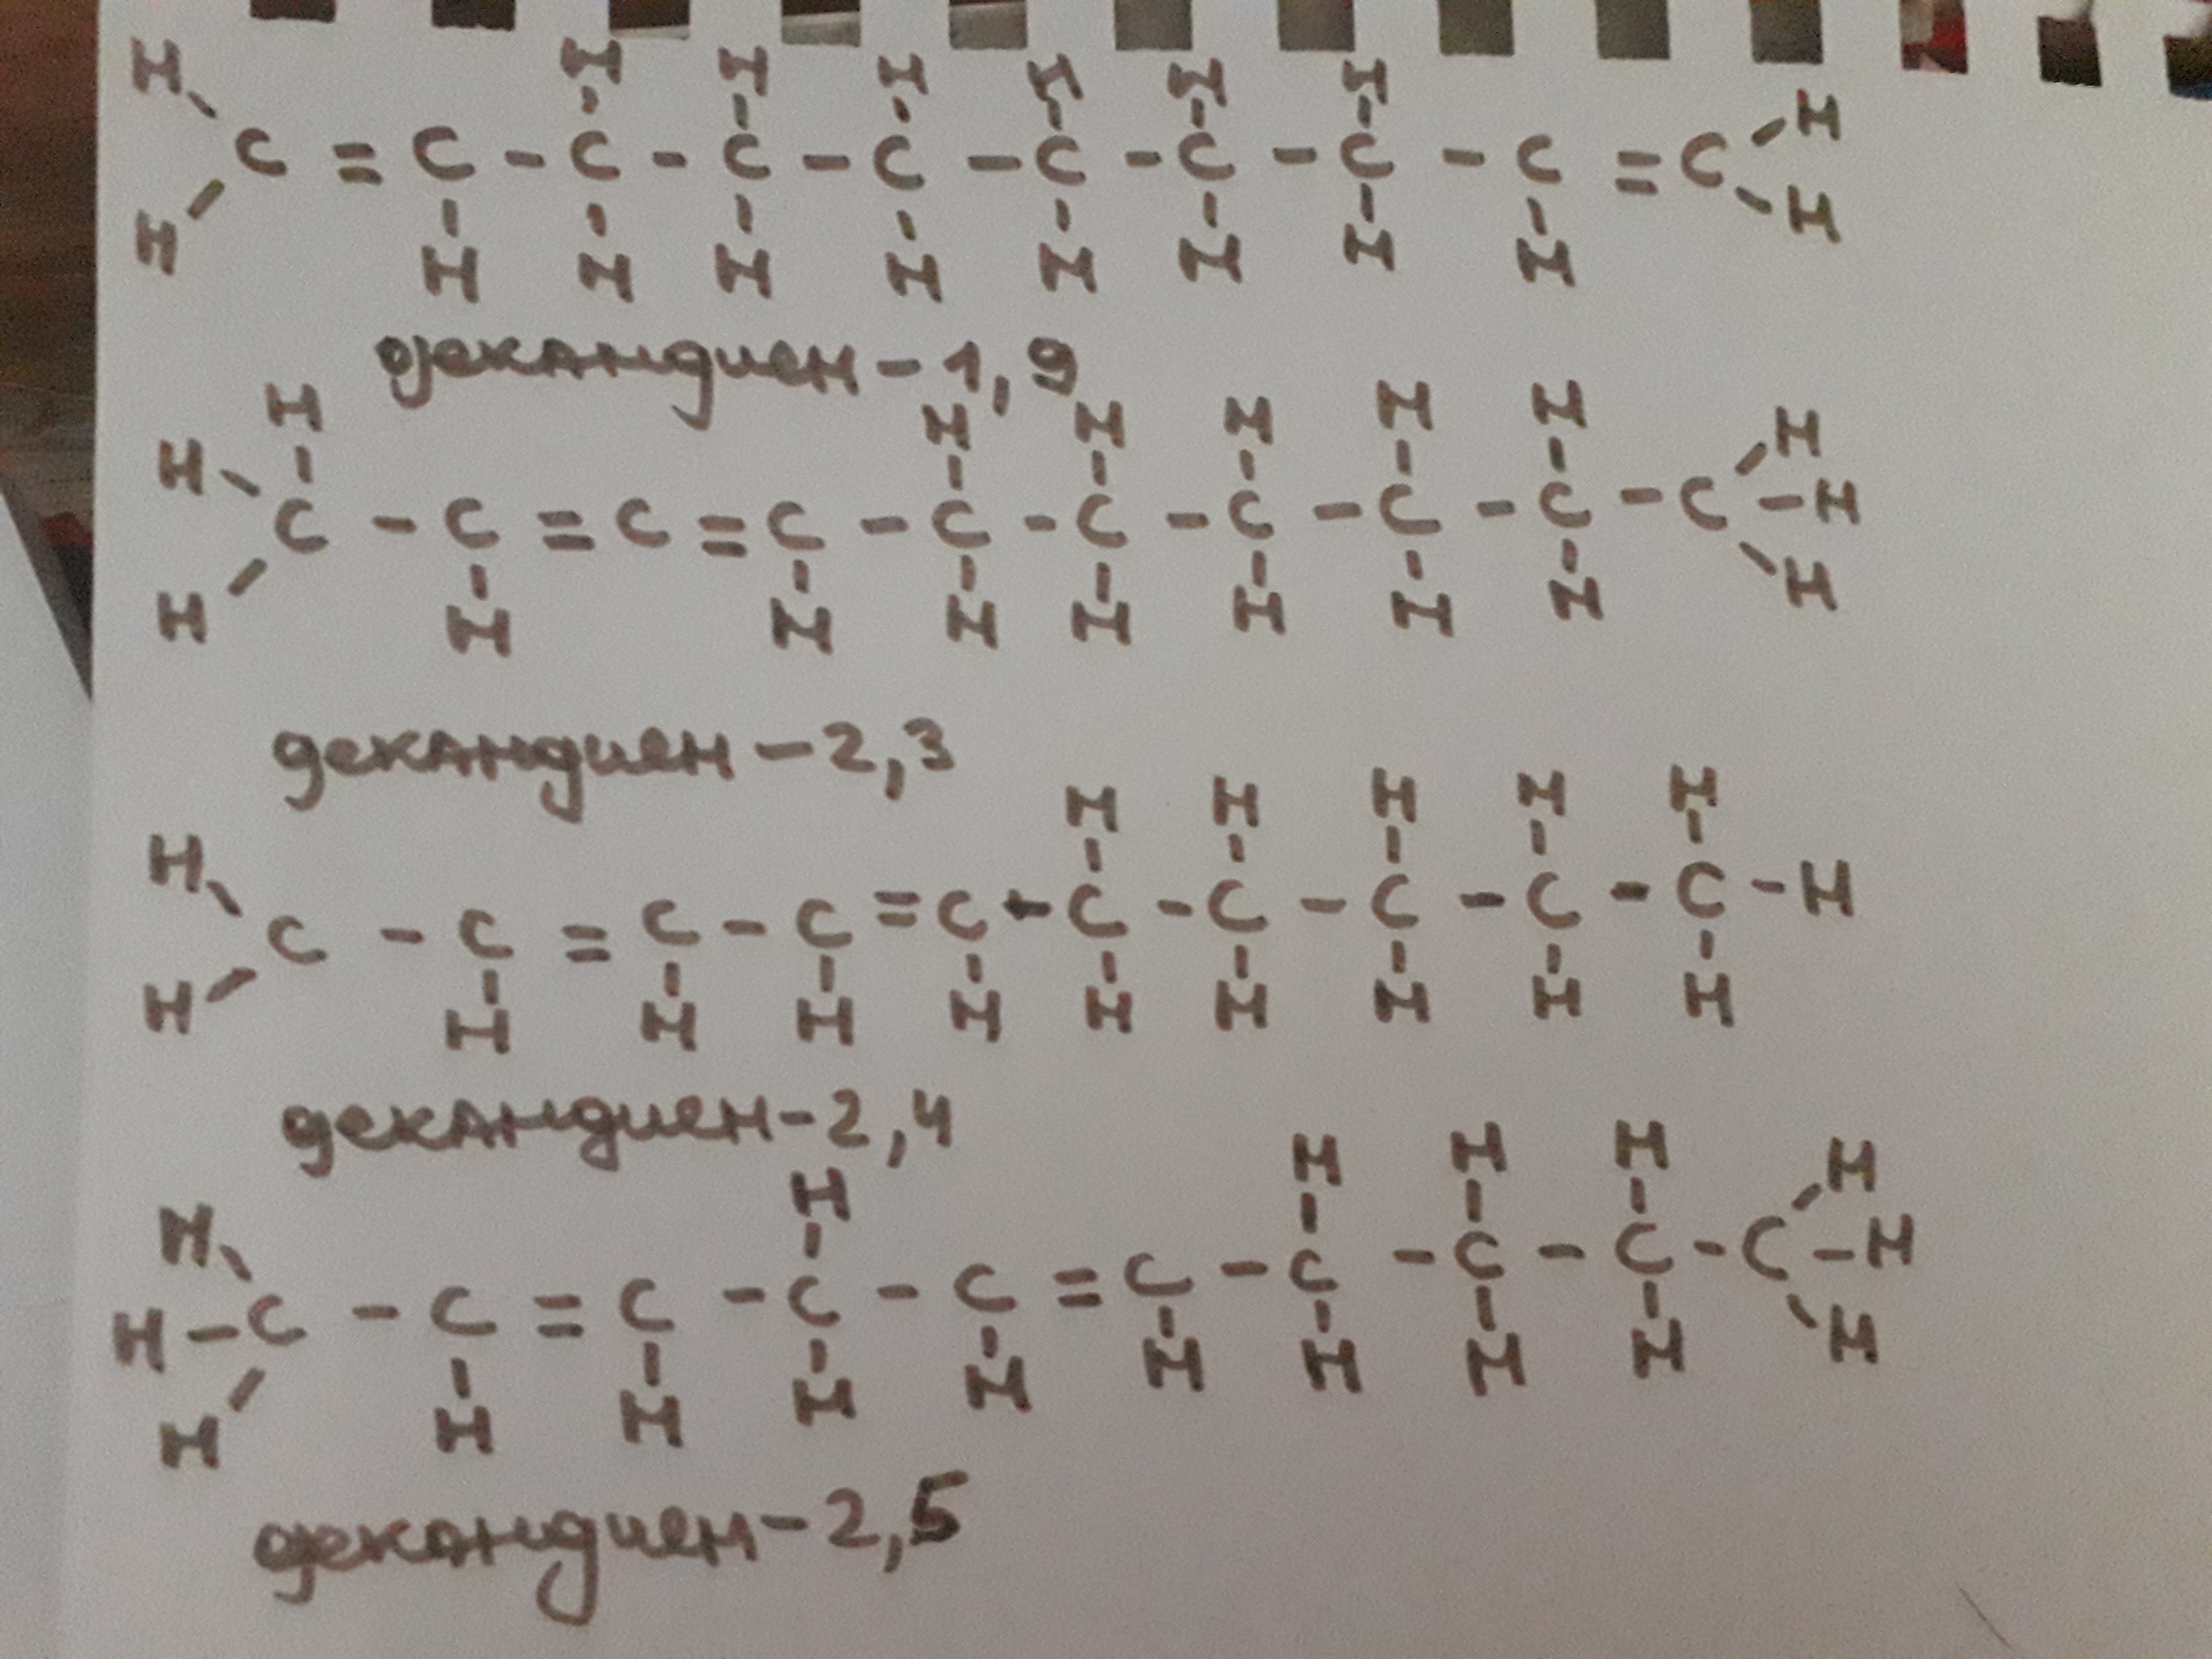 H H H H H H H H
C = C - C - C - C - C - C - C - C = C
H H H H H H H H H H
декандиен - 1,9
H H H H H H
H H
C - C = C = C - C - C - C - C - C - C - H
H H H H H H H H H
декандиен - 2,3
H H H H H
H
C - C = C - C = C - C - C - C - C - C - H
H H H H H H H H H H
декандиен - 2,4
H H H H H
H
H - C - C = C - C - C = C - C - C - C - C - H
H H H H H H H H H H
декандиен - 2,5